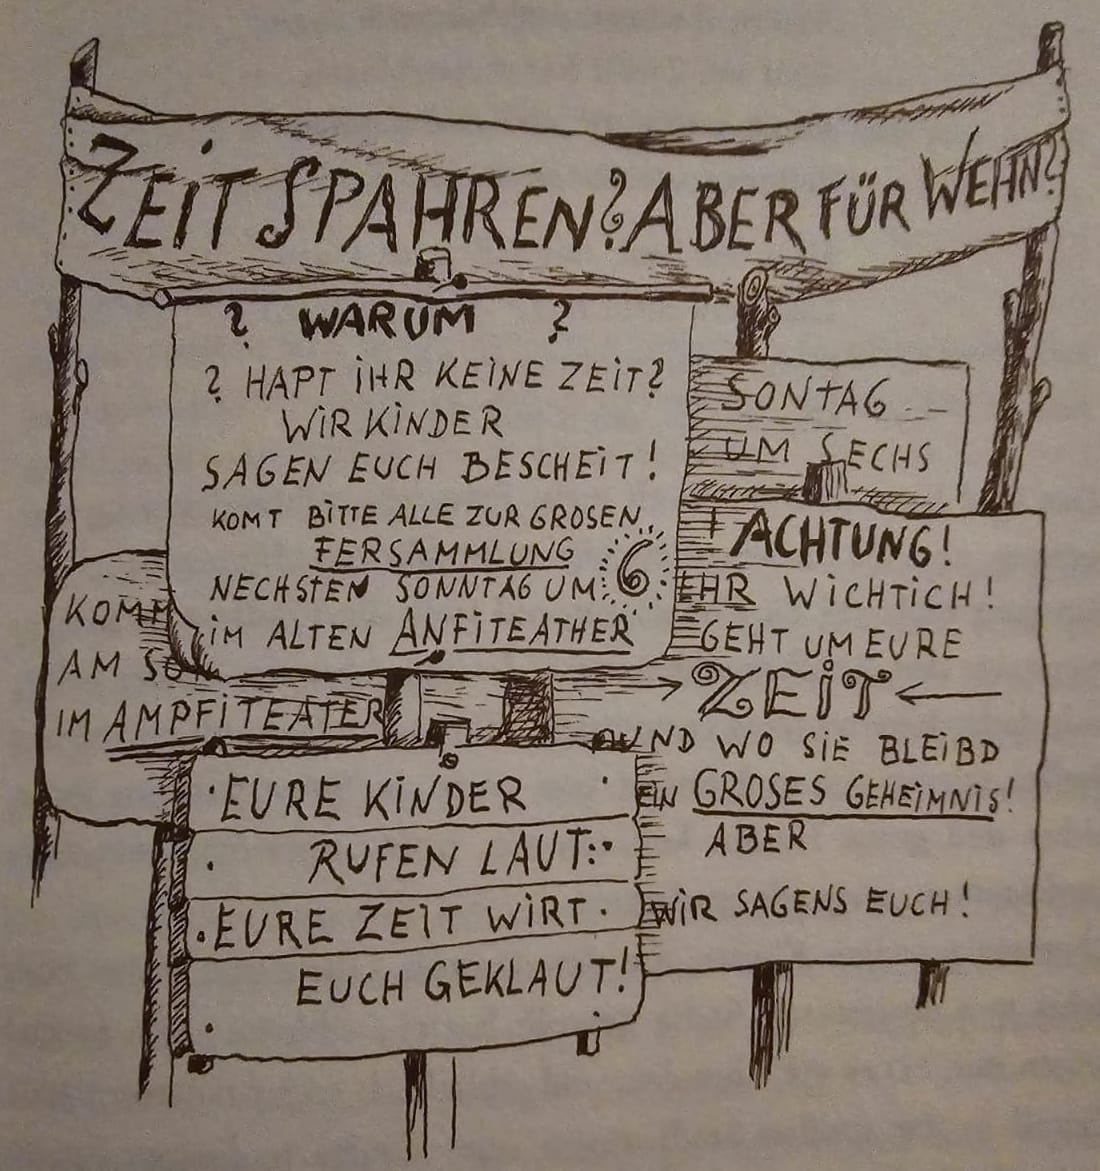 ZEIT SPAHREN? ABER FÜR WEHN?
? WARUM ?
? HAPT IHR KEINE ZEIT?
WIR KINDER
SAGEN EUCH BESCHEIT!
KOMT BITTE ALLE ZUR GROSEN
FERSAMMLUNG
NECHSTEN SONNTAG UM 6
IM ALTEN ANFITEATHER
SONTAG
UM SECHS
ACHTUNG!
EHR WICHTICH!
GEHT UM EURE
ZEIT
UND WO SIE BLEIBD
EIN GROSES GEHEIMNIS!
ABER
WIR SAGENS EUCH!
KOMM
AM SO
IM AMPFITEATER
EURE KINDER
RUFEN LAUT:
EURE ZEIT WIRT
EUCH GEKLAUT!